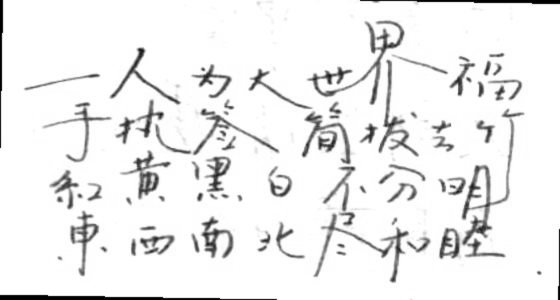 一人为大世界福
手执签筒拔去竹
紅黄黑白不分明
東西南北尽和睦